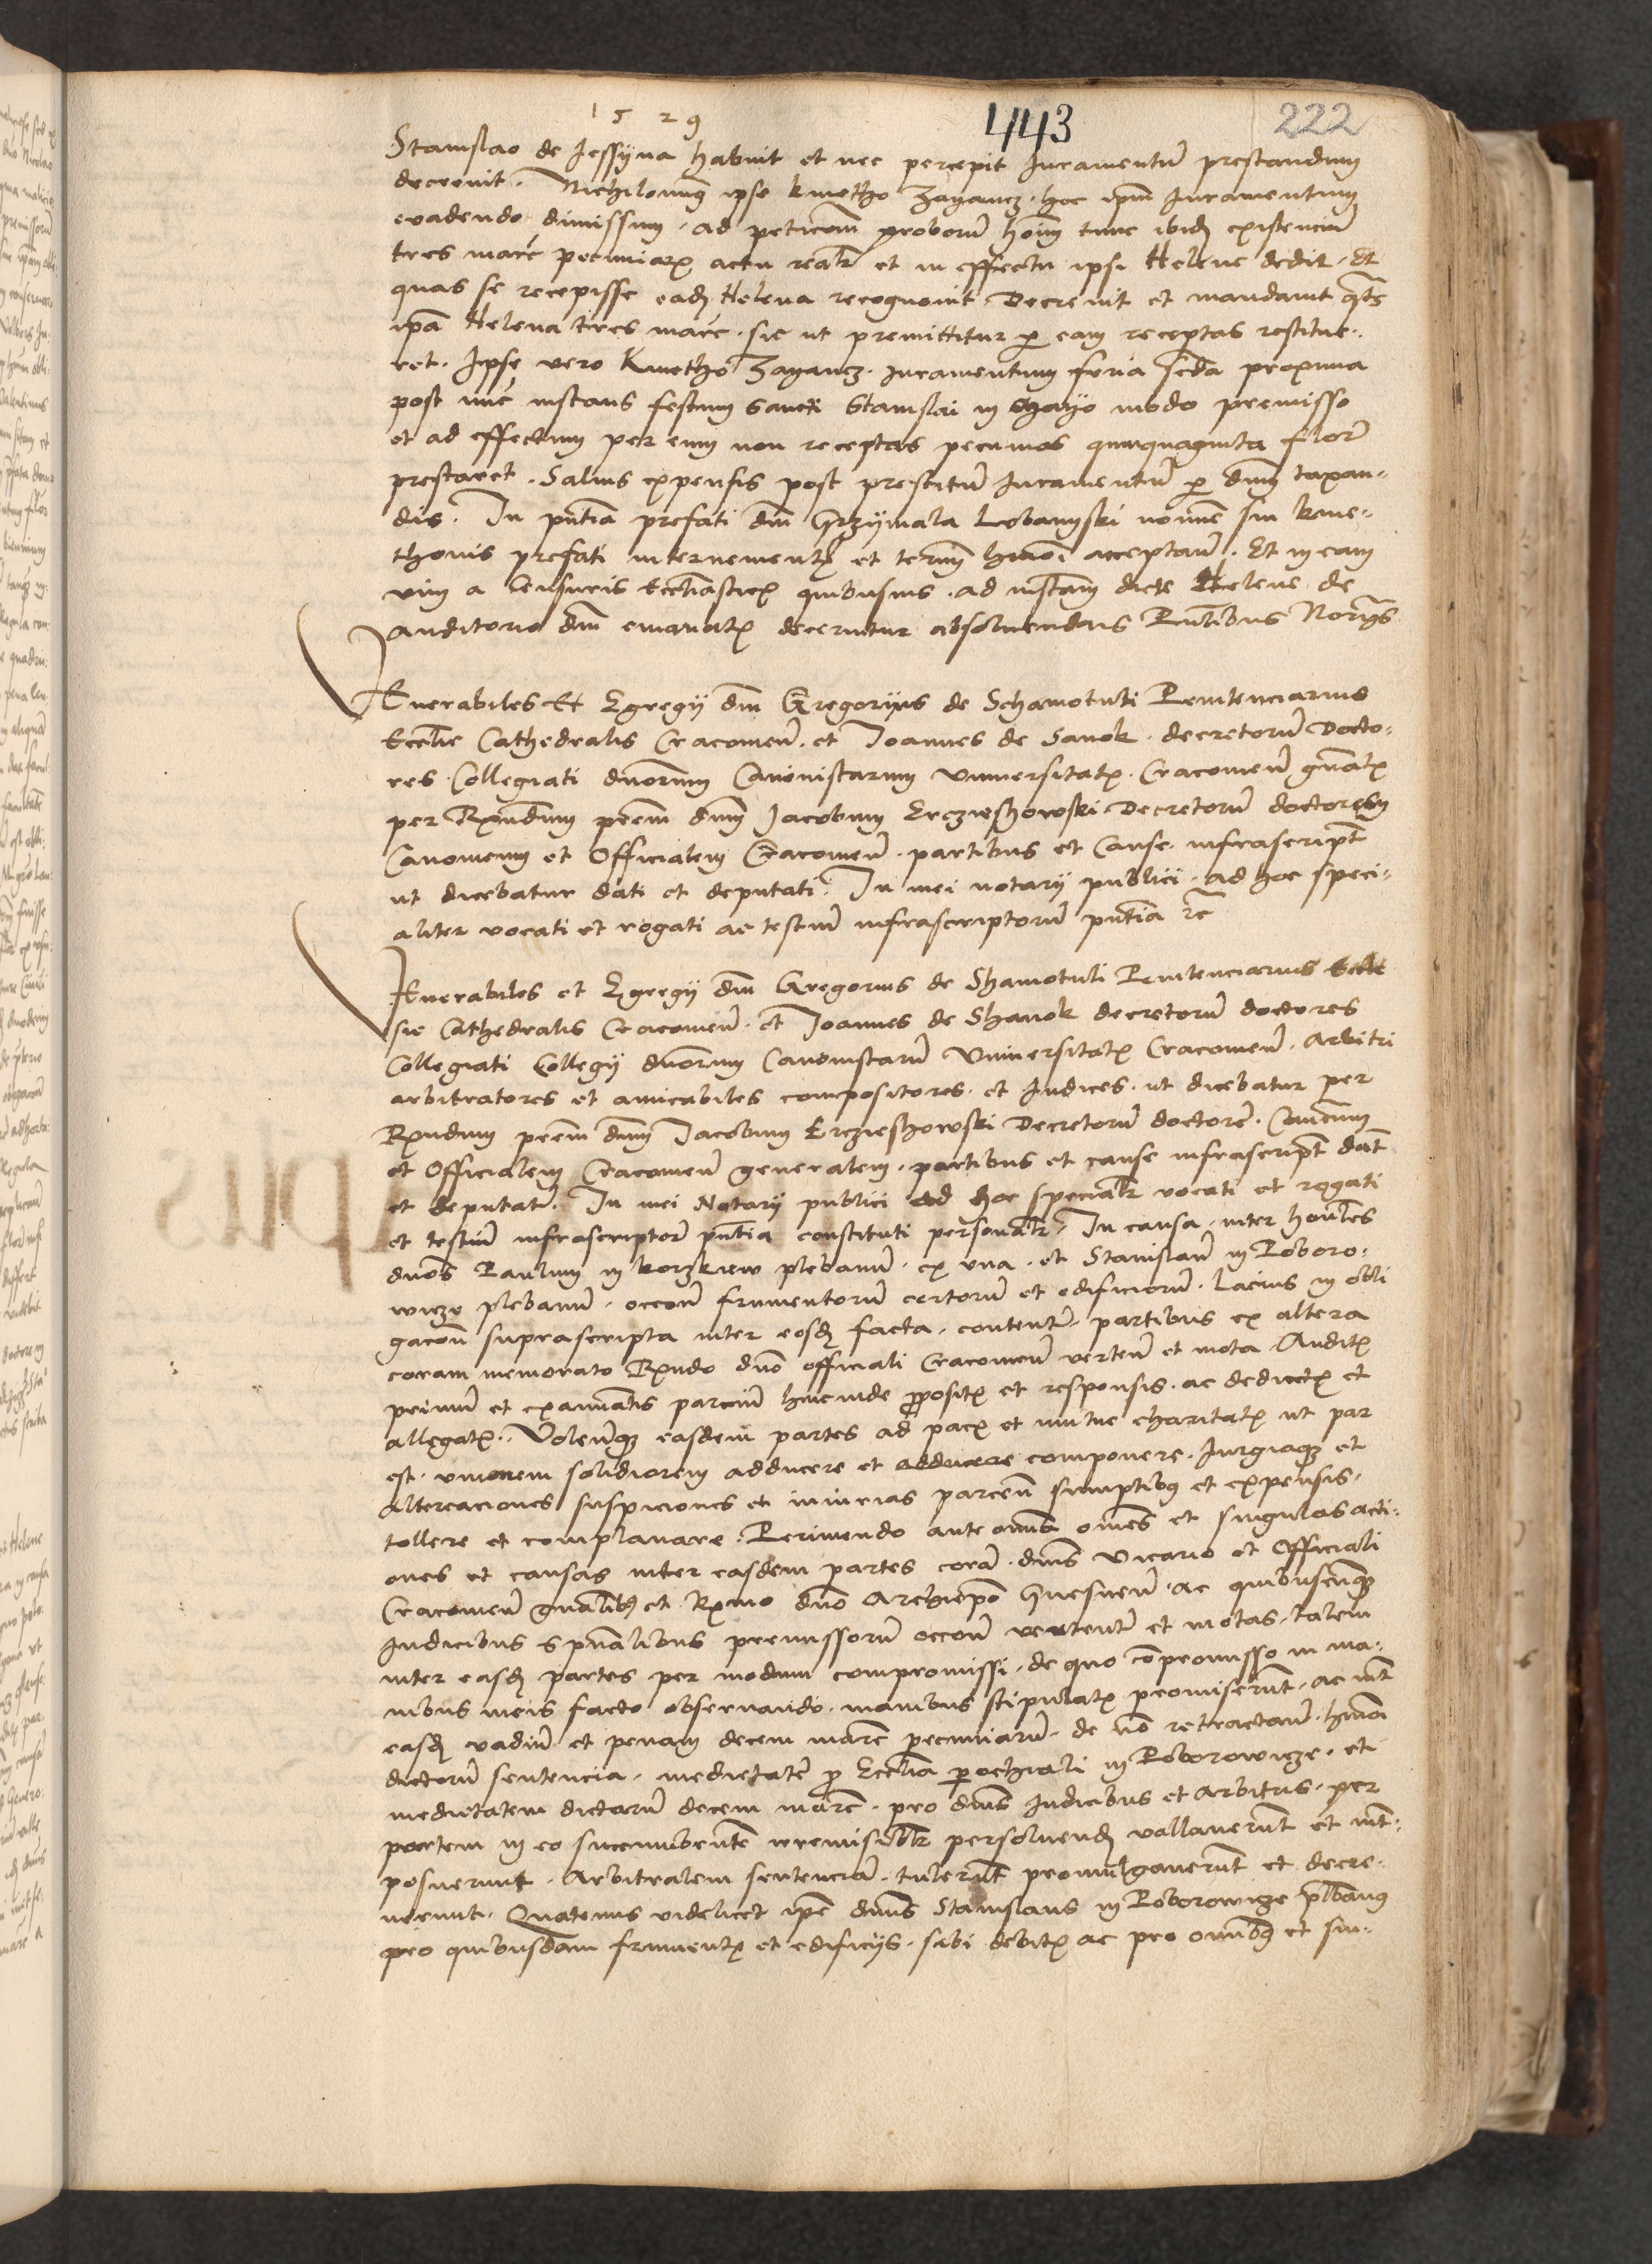 1529
443
222
Stanislao de Jessyna habuit et nec percepit Iuramentũ prestandum
decrevit. Nichilominus ipse kmetho Zayancz hoc ipm̃ Iuramentum
evadendo dimissum ad peticoem̃ proborũ hoĩm tunc ibidẽ existenciũ
tres marc̃ pecuniarꝝ actu realr̃ et in effectu ipsi Helene dedit. Et
quas se recepisse eadẽ Helena recognovit. Decrevit et mandavit qt̃s
ipã Helena tres marc̃ sic ut premittitur p̱ eam receptas restitue-
ret. Ipse vero Kmetho Zayancz Iuramentum feria scđa proxima
post nũc instans festum Sancti Stanislai in Mayo modo premisso
et ad effectum per eum non receptas pecunias quinquaginta florẽ
prestaret. Salvis expensis post prestitũ Iuramentũ p̱ dnm̃ taxan-
dis. In pñtia prefati dni Grzymala Lobanyski noĩe sui kme-
thonis prefati intervenientꝭ et termĩ hmõi acceptañ. Et in eam
vim a Censuris Eccliasticꝭ quibusvis ad instañ dicte Helene de
auditorio dni emanatꝭ decernitur absolvendus Pñtibus Norijs
Venerabiles Et Egregij dni Gregorius de Schamotuli Penitenciarius
Ecclie Cathedralis Cracovieñ. et Joannes de Sanok decretorũ Docto-
res Collegiati dnorum Canonistarum Universitatꝭ Cracovieñ gñatꝭ
per Rvndum prẽm dnm̃ Jacobum Erczieschowski Decretorũ doctorem
Canonicum et Officialem Cracovieñ. partibus et Cause infrascript̃
ut dicebatur dati et deputati. In mei notarij publici ad hoc speci-
aliter vocati et rogati ac testiũ infrascriptorũ pñtia rc̃
Venerabiles et Egregij dni Gregorius de Shamotuli Penitenciarius Eccle
sie Cathedralis Cracovieñ. et Joannes de Shanok decretorũ doctores
Collegiati Collegij dnorum Canonistarũ Universitatꝭ Cracovieñ. Arbitri
arbitratores et amicabiles compositores et Iudices ut dicebatur per
Rvndum prẽm dnm̃ Jacobum Erczieszowski Decretorũ doctorẽ. Canõcum
et Officialem Cracovieñ generalem partibus et cause infrascript̃ dat̃
et deputatẽ. In mei Notarij publici ad hoc specialr̃ vocati et rogati
et testiũ infrascriptorũ pñtia constituti personalr̃. In causa inter honbles
dnos Paulum in korzkiew plebanũ ex una et Stanislaũ in Poboro-
wicze plebanũ occõne frumentorũ certorũ et edificiorũ. Lacius in obli
gacõne suprascripta inter eosdẽ facta contentꝭ partibus ex altera
coram memorato Rvndo dno officiali Cracovieñ verteñ et mota Auditꝭ
primum et examinatis parciũ hincinde propositꝭ et responsis ac deductꝭ et
allegatꝭ. Volentesqꝫ easdem partes ad pacẽ et mutue charitatꝭ ut par
est unionem solidiorem adducere et adducere componere. Iurgiaqꝫ et
altercaciones suspiciones et iniurias parcẽdo sumptibꝫ et expensis
tollere et complanare. Perimendo ante omnia omẽs et singulas acti-
ones et causas inter easdem partes corã dnis Vicario et Officiali
Cracovieñ gñalibꝫ et Rvmo dno Archiepo Gnesneñ. ac quibuscunqꝫ
Iudicibus spũalibus premissorũ occõne vertentẽ et motas. talem
inter easdẽ partes per modum compromissi de quo cõpromisso in ma-
nibus meis facto observando manibus stipulatꝭ promiserũt. ac int̃
easdẽ vadiũ et penam decem marc̃ pecuniarũ. de nõ retractañ. hmõi
dictorũ sentencia. medietatẽ p̱ Ecclia p̱ochiali in Poborowicze. et
medietatem dictarũ decem marc̃. pro dnis Iudicibus et Arbitris per
partem in eo succumbentẽ irremisiblr̃ persolvendẽ vallaverũt et int̃-
posuerunt. Arbitralem sentenciã tulerũt promulgaverũt et decre-
verunt. Quatenus videlicet ipẽ dnus Stanislaus in Poborowicze plbanꝯ
pro quibusdam frumentꝭ et edificijs sibi debitꝭ ac pro omnibꝫ et sin-